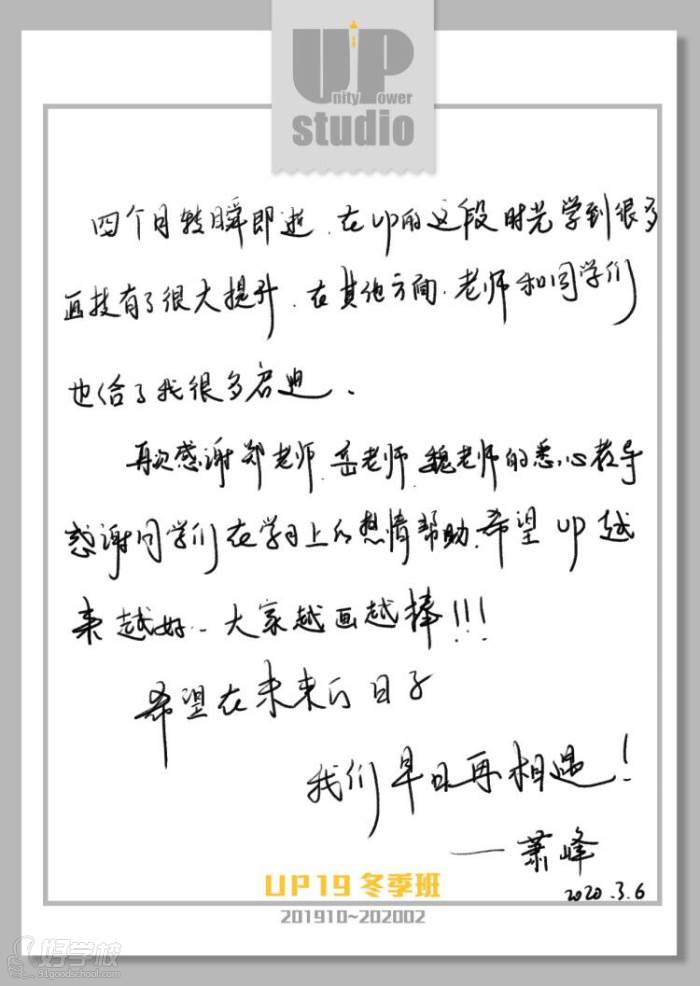 UP
Unity Power
studio
四个月转瞬即逝.在up的这段时光学到很多
画技有了很大提升.在其他方面.老师和同学们
也给了我很多启迪.
再次感谢郑老师.岳老师.魏老师的悉心教导
感谢同学们在学习上的热情帮助.希望up越
来越好..大家越画越棒!!!
希望在未来的日子
我们早日再相遇!
——萧峰
2020.3.6
UP19冬季班
201910~202002
好学校
91goodschool.com